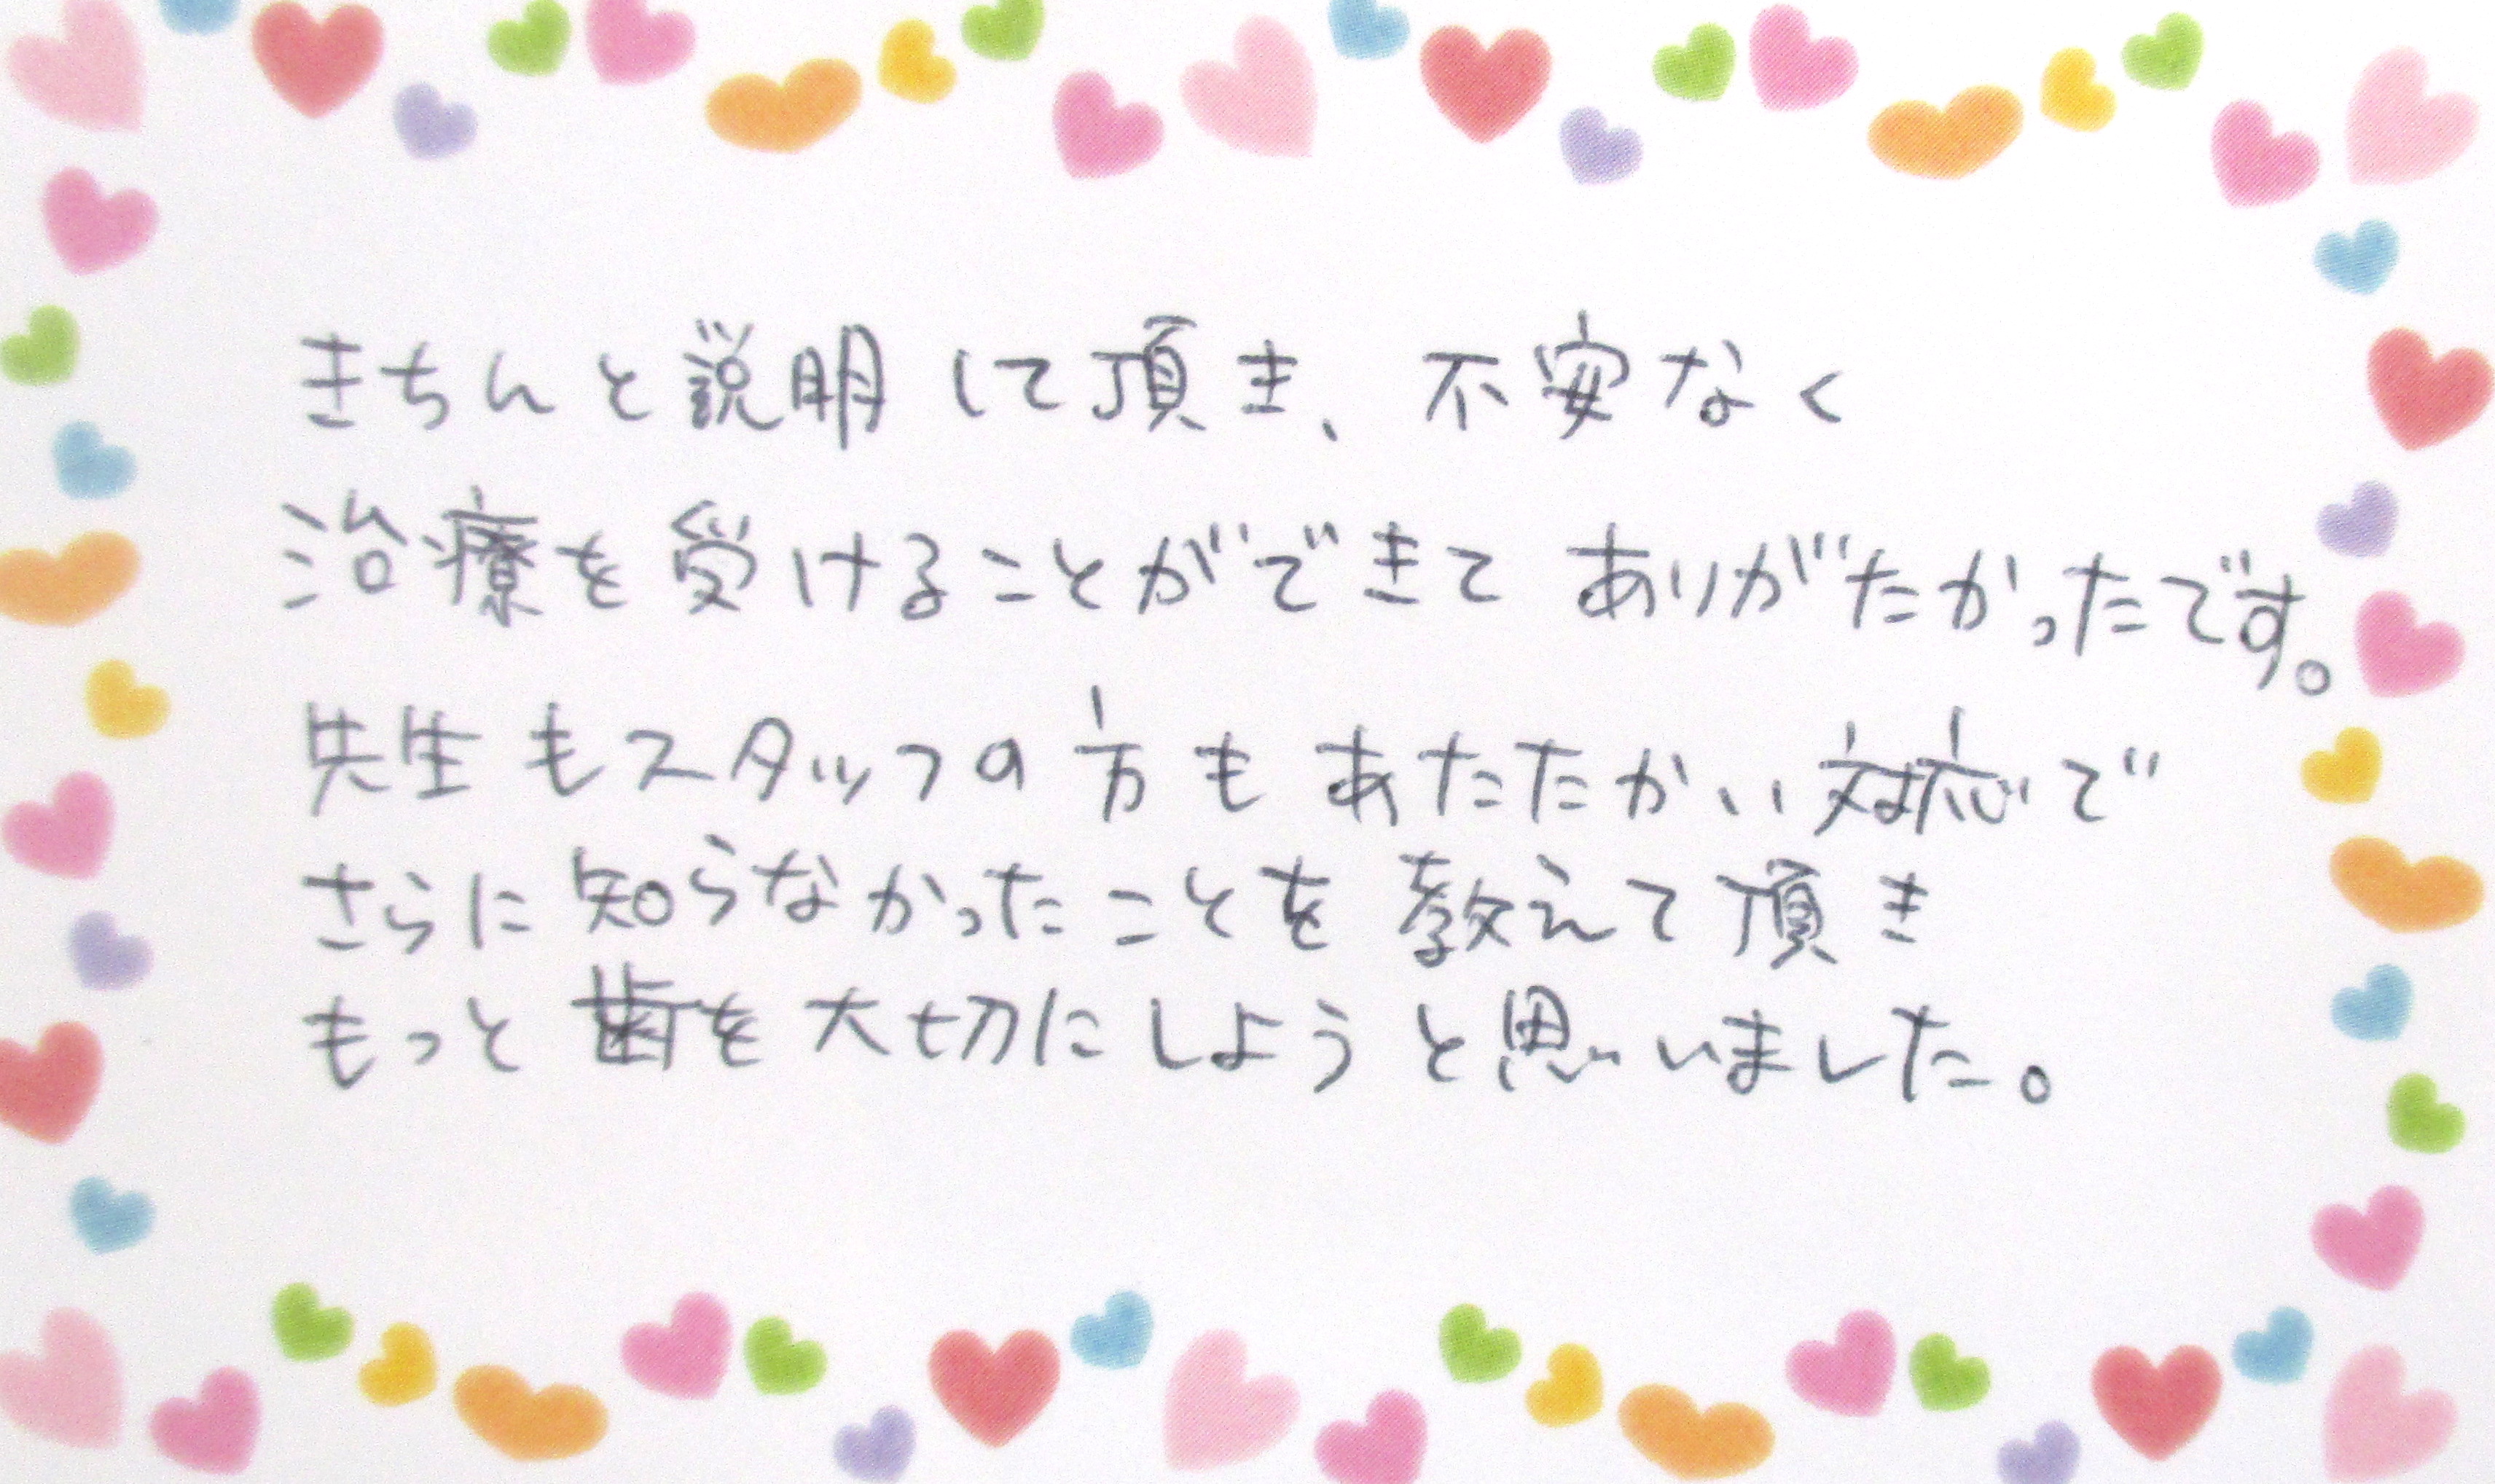 きちんと説明して頂き、不安なく
治療を受けることができてありがたかったです。
先生もスタッフの方もあたたかい対応で
さらに知らなかったことを教えて頂き
もっと歯を大切にしようと思いました。